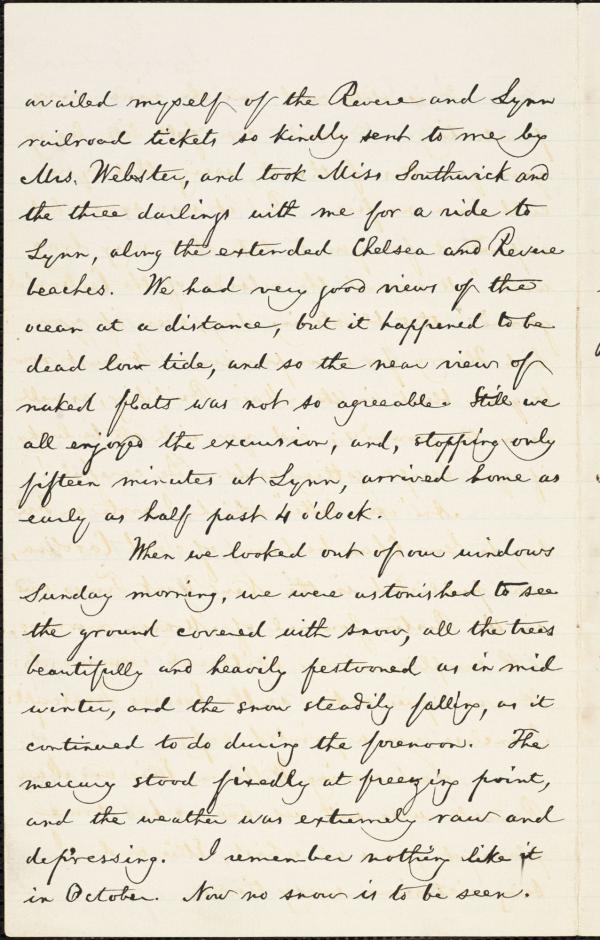 availed myself of the Revere and Lynn
railroad tickets so kindly sent to me by
Mrs. Webster, and took Miss Southwick and
the three darlings with me for a ride to
Lynn, along the extended Chelsea and Revere
beaches. We had very good views of the
ocean at a distance, but it happened to be
dead low tide, and so the near view of
naked flats was not so agreeable. Still we
all enjoyed the excursion, and, stopping only
fifteen minutes at Lynn, arrived home as
early as half past 4 o'clock.
When we looked out of our windows
Sunday morning, we were astonished to see
the ground covered with snow, all the trees
beautifully and heavily festooned as in mid
winter, and the snow steadily falling, as it
continued to do during the forenoon. The
mercury stood fixedly at freezing point,
and the weather was extremely raw and
depressing. I remember nothing like it
in October. Now no snow is to be seen.